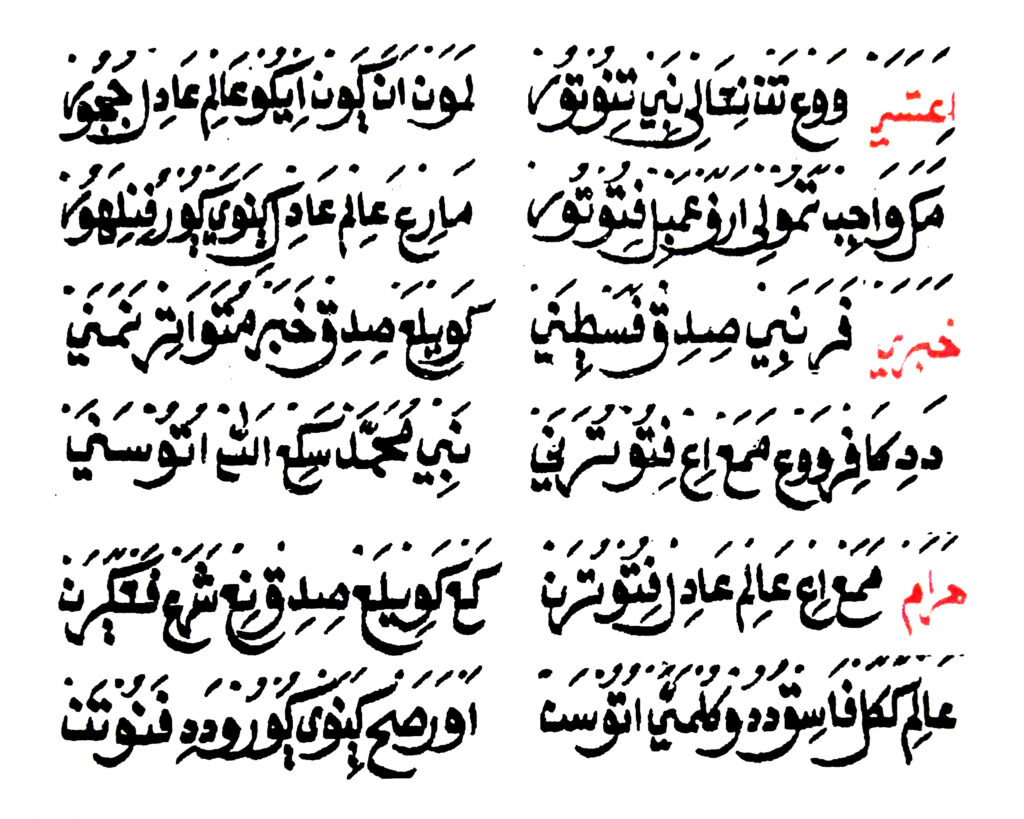 اعتسي ووع تتنعالي نبي تتوتور لمون ان كون ايكو عالم عادل ججور
مك واجب تمولي ارف عمبل فتوتور مارع عالم عادل كينوي كور فنلهور
خبري فر نبي صدق فسطني كويلع صدق خبر متواتر نمني
دد كافر ووع ممع اع فتوترني نبي محمد سكع الله اتوسني
هرام ممع اع عالم عادل فتوترن كع كويلع صدق نع شرع فعيكرن
عالم ككل فاسق دد وكلمني اتوست اور صح كينوي كورو دد فنوتن